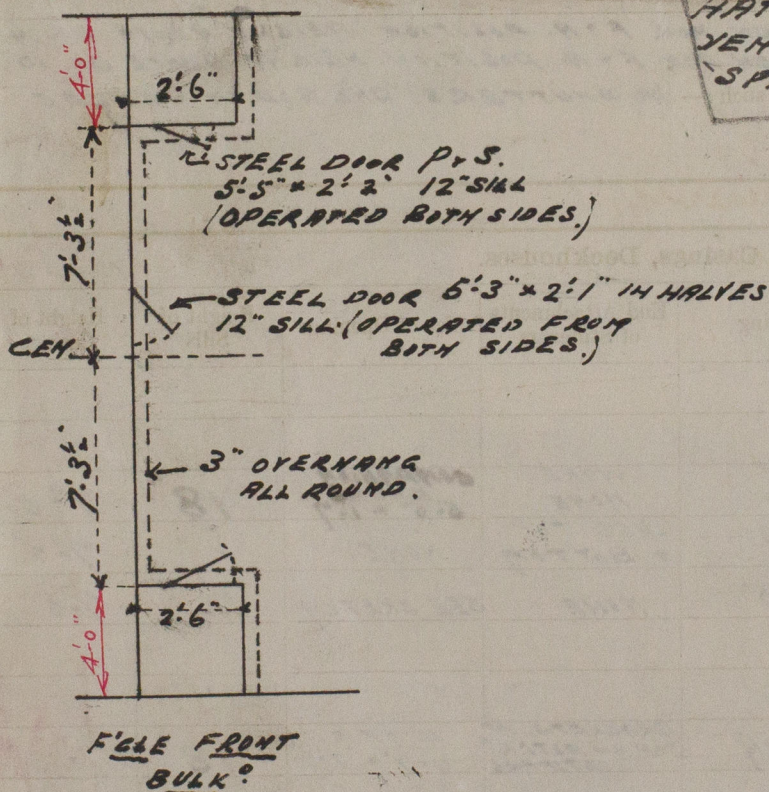 HAT
VEN
SPA
4'-0"
2'-6"
STEEL DOOR P & S.
5'-5" × 2'-2" 12" SILL
(OPERATED BOTH SIDES.)
7'-3½"
STEEL DOOR 5'-3" × 2'-1" IN HALVES
12" SILL. (OPERATED FROM
BOTH SIDES.)
CEN.
7'-3½"
3" OVERHANG
ALL ROUND.
2'-6"
4'-0"
F'CLE FRONT
BULKD